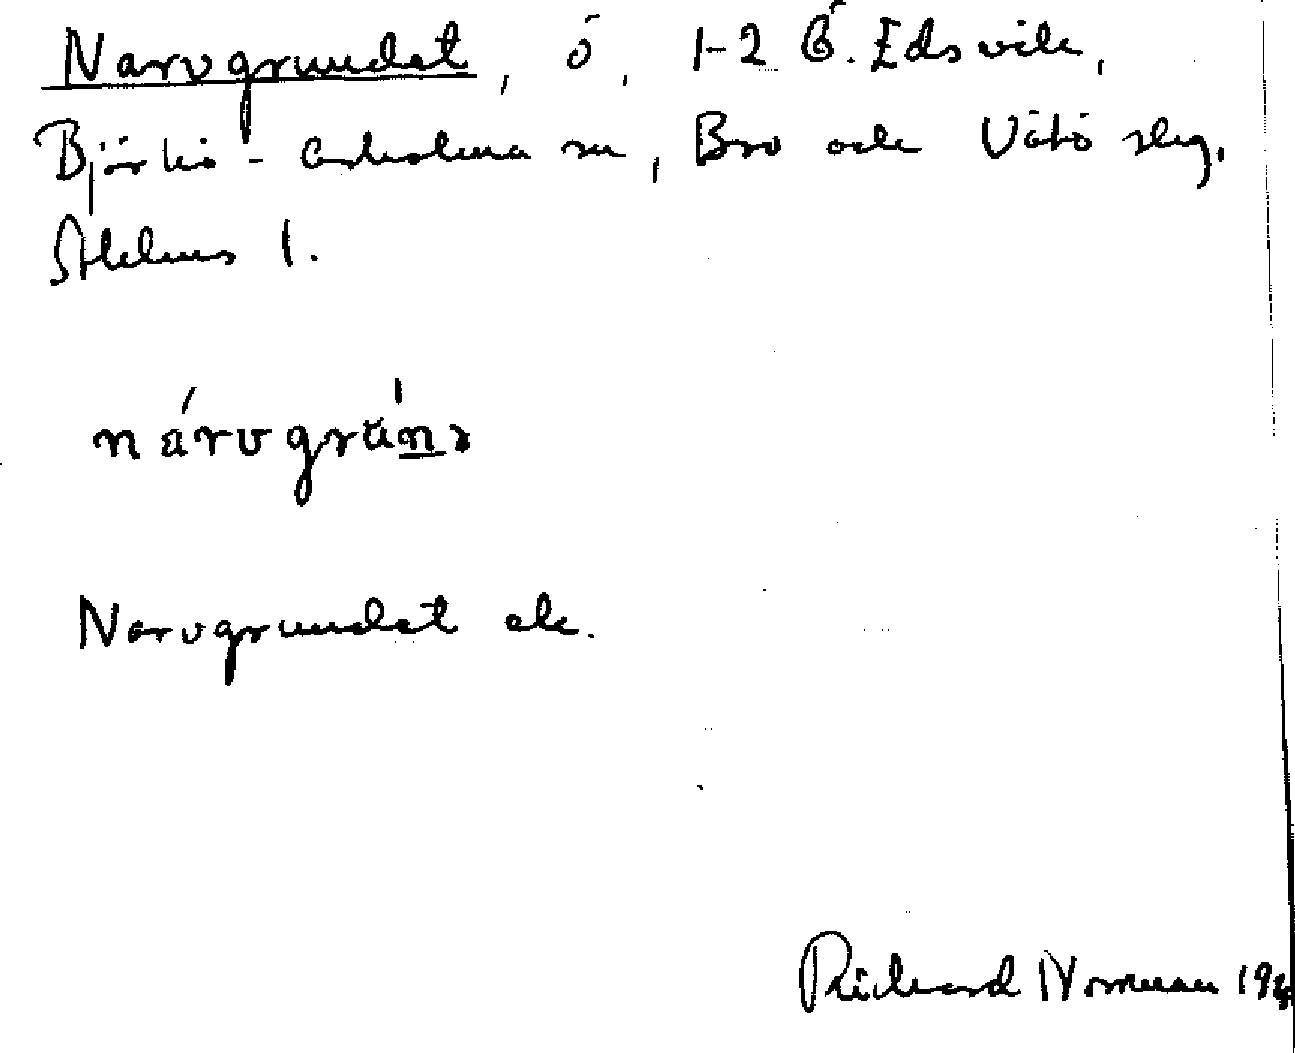 Narvgrundet, ö, 1-2 Ö. Edsvik,
Björkö-Arholma sn, Bro och Vätö slg,
Sthlms l.
nárvgrún
Narvgrundet ek.
Richard Norrman 194